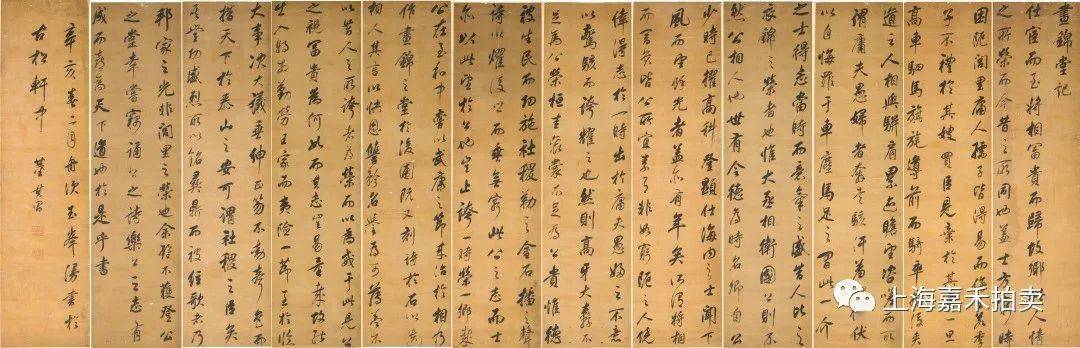 晝錦堂記
仕宦而至將相富貴而歸故鄉此人情
之所榮而今昔之所同也蓋士方窮時
困阨閭里庸人孺子皆得易而侮之若季
子不禮於其嫂買臣見棄於其妻一旦
高車駟馬旗旄導前而騎卒擁後夾
道之人相與駢肩累迹瞻望咨嗟而所
謂庸夫愚婦者奔走駭汗羞愧俯伏
以自悔罪于車塵馬足之間此一介
之士得志當時而意氣之盛昔人比之
衣錦之榮者也惟大丞相衛國公則不
然公相人也世有令德為時名卿自公
少時已擢高科登顯仕海內之士聞下
風而望餘光者蓋亦有年矣所謂將相
而富貴皆公所宜素有非如窮阨之人僥
倖得志於一時出於庸夫愚婦之不意
以驚駭而誇耀之也然則高牙大纛不
足為公榮桓圭袞裳不足為公貴惟德
被生民而功施社稷勒之金石播之聲
詩以耀後世而垂無窮此公之志而士
亦以此望於公也豈止誇一時榮一鄉哉
公在至和中嘗以武康之節來治於相乃
作晝錦之堂於後圃既又刻詩於石以遺
相人其言以快恩讐矜名譽為可薄蓋不
以昔人之所誇者為榮而以為戒于此見公
之視富貴為何如而其志豈易量哉故能
出勤勞王家而夷險一節至於臨
大事決大議垂紳正笏不動聲色而
措天下於泰山之安可謂社稷之臣矣
其豐功盛烈所以銘彝鼎而被絃歌者乃
邦家之光非閭里之榮也余雖不獲登公
之堂幸嘗竊誦公之詩樂公之志有
成而喜為天下道也於是乎書
辛亥春二月舟次玉峯漫書於
古松軒中 董其昌
上海嘉禾拍卖